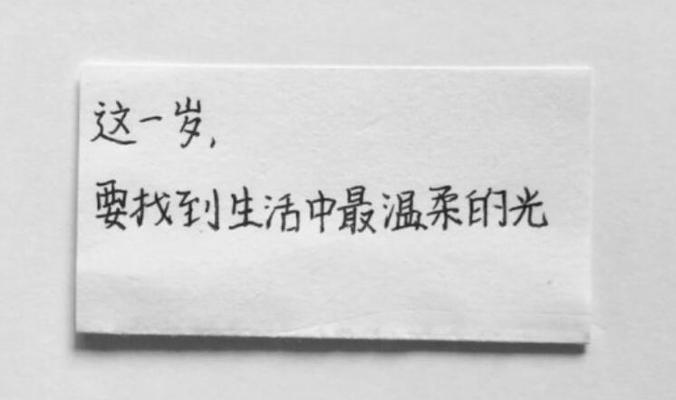 这一岁,
要找到生活中最温柔的光